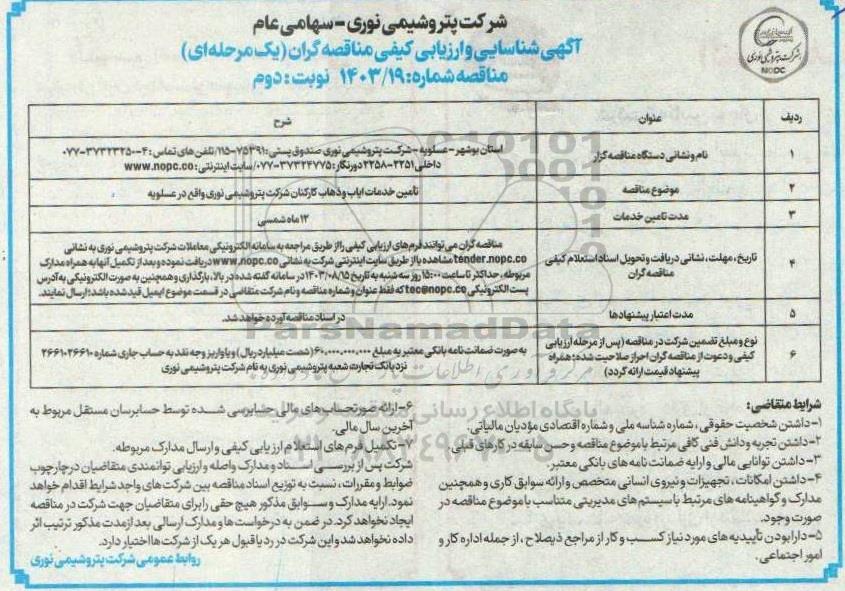 شرکت پتروشیمی نوری - سهامی عام
آگهی شناسایی و ارزیابی کیفی مناقصه گران (یک مرحله ای)
مناقصه شماره: ۱۴۰۳/۱۹ نوبت : دوم
شرکت پتروشیمی نوری
NOPC
ردیف عنوان شرح
۱ نام و نشانی دستگاه مناقصه گزار
استان بوشهر - عسلویه - شرکت پتروشیمی نوری صندوق پستی: ۷۵۳۹۱-۱۱۵/ تلفن های تماس : ۴-۳۷۳۲۳۲۵۰-۰۷۷
داخلی ۲۲۵۱-۲۲۵۸ دورنگار : ۳۷۳۲۴۷۷۵-۰۷۷/ سایت اینترنتی : www.nopc.co
۲ موضوع مناقصه تأمین خدمات ایاب و ذهاب کارکنان شرکت پتروشیمی نوری واقع در عسلویه
۳ مدت تامین خدمات ۱۲ ماه شمسی
۴ تاریخ، مهلت، نشانی دریافت و تحویل اسناد استعلام کیفی
مناقصه گران
مناقصه گران می توانند فرم های ارزیابی کیفی را از طریق مراجعه به سامانه الکترونیکی معاملات شرکت پتروشیمی نوری به نشانی
tender.nopc.co مشاهده یا از طریق سایت اینترنتی شرکت به نشانی www.nopc.co دریافت نموده و بعد از تکمیل آنها به همراه مدارک
مربوطه، حداکثر تا ساعت ۱۵:۰۰ روز سه شنبه به تاریخ ۱۴۰۳/۰۸/۱۵ در سامانه گفته شده در بالا، بارگذاری و همچنین به صورت الکترونیکی به آدرس
پست الکترونیکی tec@nopc.co که فقط عنوان و شماره مناقصه و نام شرکت متقاضی در قسمت موضوع ایمیل قید شده باشد؛ ارسال نمایند.
۵ مدت اعتبار پیشنهادها در اسناد مناقصه آورده خواهد شد.
۶ نوع و مبلغ تضمین شرکت در مناقصه (پس از مرحله ارزیابی
کیفی و دعوت از مناقصه گران احراز صلاحیت شده؛ همراه
پیشنهاد قیمت ارائه گردد)
به صورت ضمانت نامه بانکی معتبر به مبلغ ۶۰,۰۰۰,۰۰۰,۰۰۰ (شصت میلیارد ریال) و یا واریز وجه نقد به حساب جاری شماره ۲۶۶۱۰۲۶۶۱۰
نزد بانک تجارت شعبه پتروشیمی نوری به نام شرکت پتروشیمی نوری
شرایط متقاضی:
۱- داشتن شخصیت حقوقی، شماره شناسه ملی و شماره اقتصادی مؤدیان مالیاتی.
۲- داشتن تجربه و دانش فنی کافی مرتبط با موضوع مناقصه و حسن سابقه در کارهای قبلی
۳- داشتن توانایی مالی و ارایه ضمانت نامه های بانکی معتبر.
۴- داشتن امکانات، تجهیزات و نیروی انسانی متخصص و ارائه سوابق کاری و همچنین
مدارک و گواهینامه های مرتبط با سیستم های مدیریتی متناسب با موضوع مناقصه در
صورت وجود.
۵- دارا بودن تأییدیه های مورد نیاز کسب و کار از مراجع ذیصلاح، از جمله اداره کار و
امور اجتماعی.
۶- ارائه صورتحساب های مالی حسابرسی شده توسط حسابرسان مستقل مربوط به
آخرین سال مالی.
۷- تکمیل فرم های استعلام ارزیابی کیفی و ارسال مدارک مربوطه.
شرکت پس از بررسی اسناد و مدارک واصله و ارزیابی توانمندی متقاضیان در چارچوب
ضوابط و مقررات، نسبت به توزیع اسناد مناقصه بین شرکت های واجد شرایط اقدام خواهد
نمود. ارایه مدارک و سوابق مذکور هیچ حقی را برای متقاضیان جهت شرکت در مناقصه
ایجاد نخواهد کرد. در ضمن به درخواست ها و مدارک ارسالی بعد از مدت مذکور ترتیب اثر
داده نخواهد شد و این شرکت در رد یا قبول هر یک از شرکت ها اختیار دارد.
روابط عمومی شرکت پتروشیمی نوری
ParsNamadData